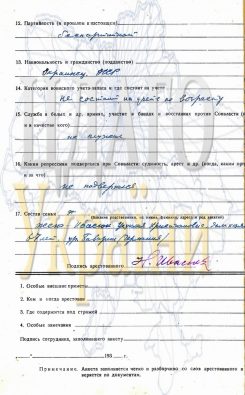 12. Партийность (в прошлом и настоящем)
беспартийный
13. Национальность и гражданство (подданство)
Украинец, СССР
14. Категория воинского учета-запаса и где состоит на учете
Не состоит на учете по возрасту
15. Служба в белых и др. армиях, участие в бандах и восстаниях против Соввласти (когда
и в качестве кого)
не служил
16. Каким репрессиям подвергался при Соввласти: судимость, арест и др. (когда, каким органом
и за что)
не подвергался
17. Состав семьи
(Близкие родственники, их имена, фамилии, адреса и род занятий)
жена
Бавария (Германия)
Подпись арестованного
1. Особые внешние приметы
2. Кем и когда арестован
3. Где содержится под стражей
4. Особые замечания
Подпись сотрудника, заполнившего анкету
193 г.
Примечание. Анкета заполняется четко и разборчиво со слов арестованного и
веряется по документам.